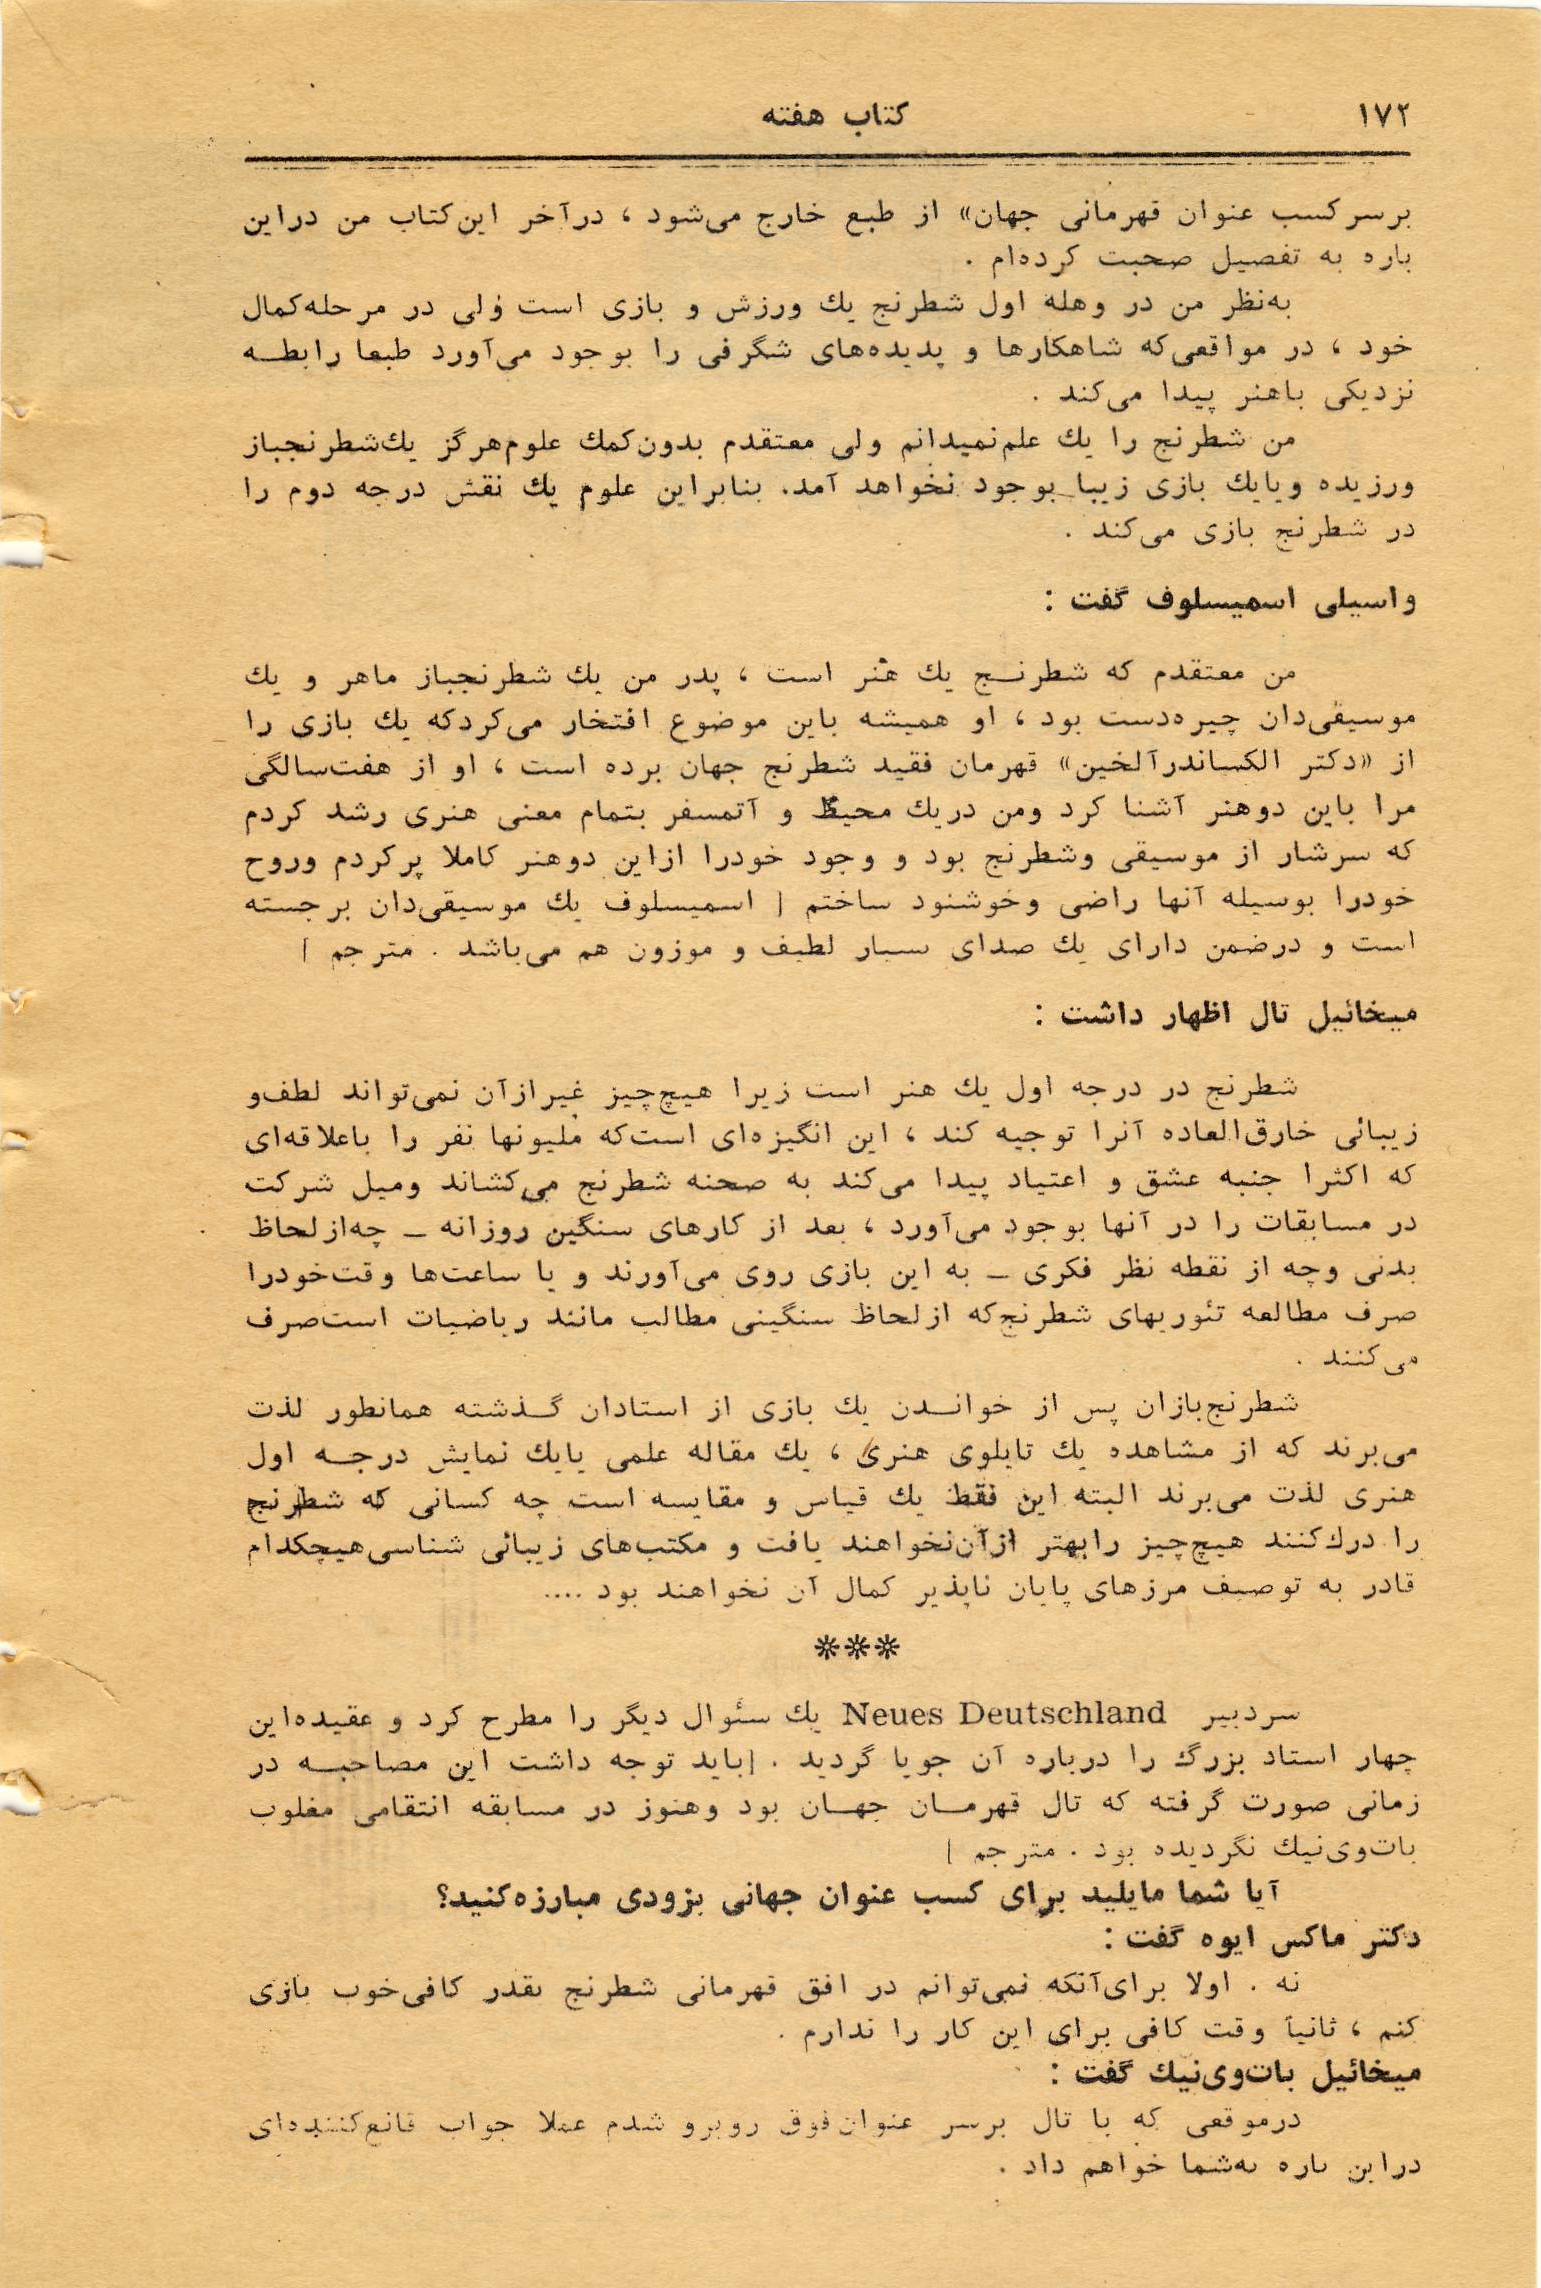 ۱۷۲
کتاب هفته
برسر کسب عنوان قهرمانی جهان» از طبع خارج می‌شود ، درآخر این‌کتاب من دراین
باره به تفصیل صحبت کرده‌ام .
به‌نظر من در وهله اول شطرنج یك ورزش و بازی است ولی در مرحله‌کمال
خود ، در مواقعی‌که شاهکارها و پدیده‌های شگرفی را بوجود می‌آورد طبعا رابطــه
نزدیکی باهنر پیدا می‌کند .
من شطرنج را یك علم‌نمیدانم ولی معتقدم بدون‌کمك علوم‌هرگز یك‌شطرنجباز
ورزیده ویایك بازی زیبا بوجود نخواهد آمد. بنابراین علوم یك نقش درجه دوم را
در شطرنج بازی می‌کند .
واسیلی اسمیسلوف گفت :
من معتقدم که شطرنــج یك هنر است ، پدر من یك شطرنجباز ماهر و یك
موسیقی‌دان چیره‌دست بود ، او همیشه باین موضوع افتخار می‌کردکه یك بازی را
از «دکتر الکساندرآلخین» قهرمان فقید شطرنج جهان برده است ، او از هفت‌سالگی
مرا باین دوهنر آشنا کرد ومن دریك محیط و آتمسفر بتمام معنی هنری رشد کردم
که سرشار از موسیقی وشطرنج بود و وجود خودرا ازاین دوهنر کاملا پرکردم وروح
خودرا بوسیله آنها راضی وخوشنود ساختم | اسمیسلوف یك موسیقی‌دان برجسته
است و درضمن دارای یك صدای بسیار لطیف و موزون هم می‌باشد . مترجم |
میخائیل تال اظهار داشت :
شطرنج در درجه اول یك هنر است زیرا هیچ‌چیز غیرازآن نمی‌تواند لطف‌و
زیبائی خارق‌العاده آنرا توجیه کند ، این انگیزه‌ای است‌که ملیونها نفر را باعلاقه‌ای
که اکثرا جنبه عشق و اعتیاد پیدا می‌کند به صحنه شطرنج می‌کشاند ومیل شرکت
در مسابقات را در آنها بوجود می‌آورد ، بعد از کارهای سنگین روزانه ـ چه‌ازلحاظ
بدنی وچه از نقطه نظر فکری ـ به این بازی روی می‌آورند و یا ساعت‌ها وقت‌خودرا
صرف مطالعه تئوریهای شطرنج‌که ازلحاظ سنگینی مطالب مانند ریاضیات است‌صرف
می‌کنند .
شطرنج‌بازان پس از خوانــدن یك بازی از استادان گــذشته همانطور لذت
می‌برند که از مشاهده یك تابلوی هنری ، یك مقاله علمی یایك نمایش درجــه اول
هنری لذت می‌برند البته این فقط یك قیاس و مقایسه است چه کسانی که شطرنج
را درك‌کنند هیچ‌چیز رابهتر ازآن‌نخواهند یافت و مکتب‌های زیبائی شناسی‌هیچکدام
قادر به توصیف مرزهای پایان ناپذیر کمال آن نخواهند بود ....
***
سردبیر Neues Deutschland یك سئوال دیگر را مطرح کرد و عقیده‌این
چهار استاد بزرگ را درباره آن جویا گردید . |باید توجه داشت این مصاحبــه در
زمانی صورت گرفته که تال قهرمــان جهــان بود وهنوز در مسابقه انتقامی مغلوب
بات‌وی‌نیك نگردیده بود . مترجم |
آیا شما مایلید برای کسب عنوان جهانی بزودی مبارزه‌کنید؟
دکتر ماکس ایوه گفت :
نه . اولا برای‌آنکه نمی‌توانم در افق قهرمانی شطرنج بقدر کافی‌خوب بازی
کنم ، ثانیاً وقت کافی برای این کار را ندارم .
میخائیل بات‌وی‌نیك گفت :
درموقعی که با تال برسر عنوان‌فوق روبرو شدم عملا جواب قانع‌کننده‌ای
دراین باره به‌شما خواهم داد .